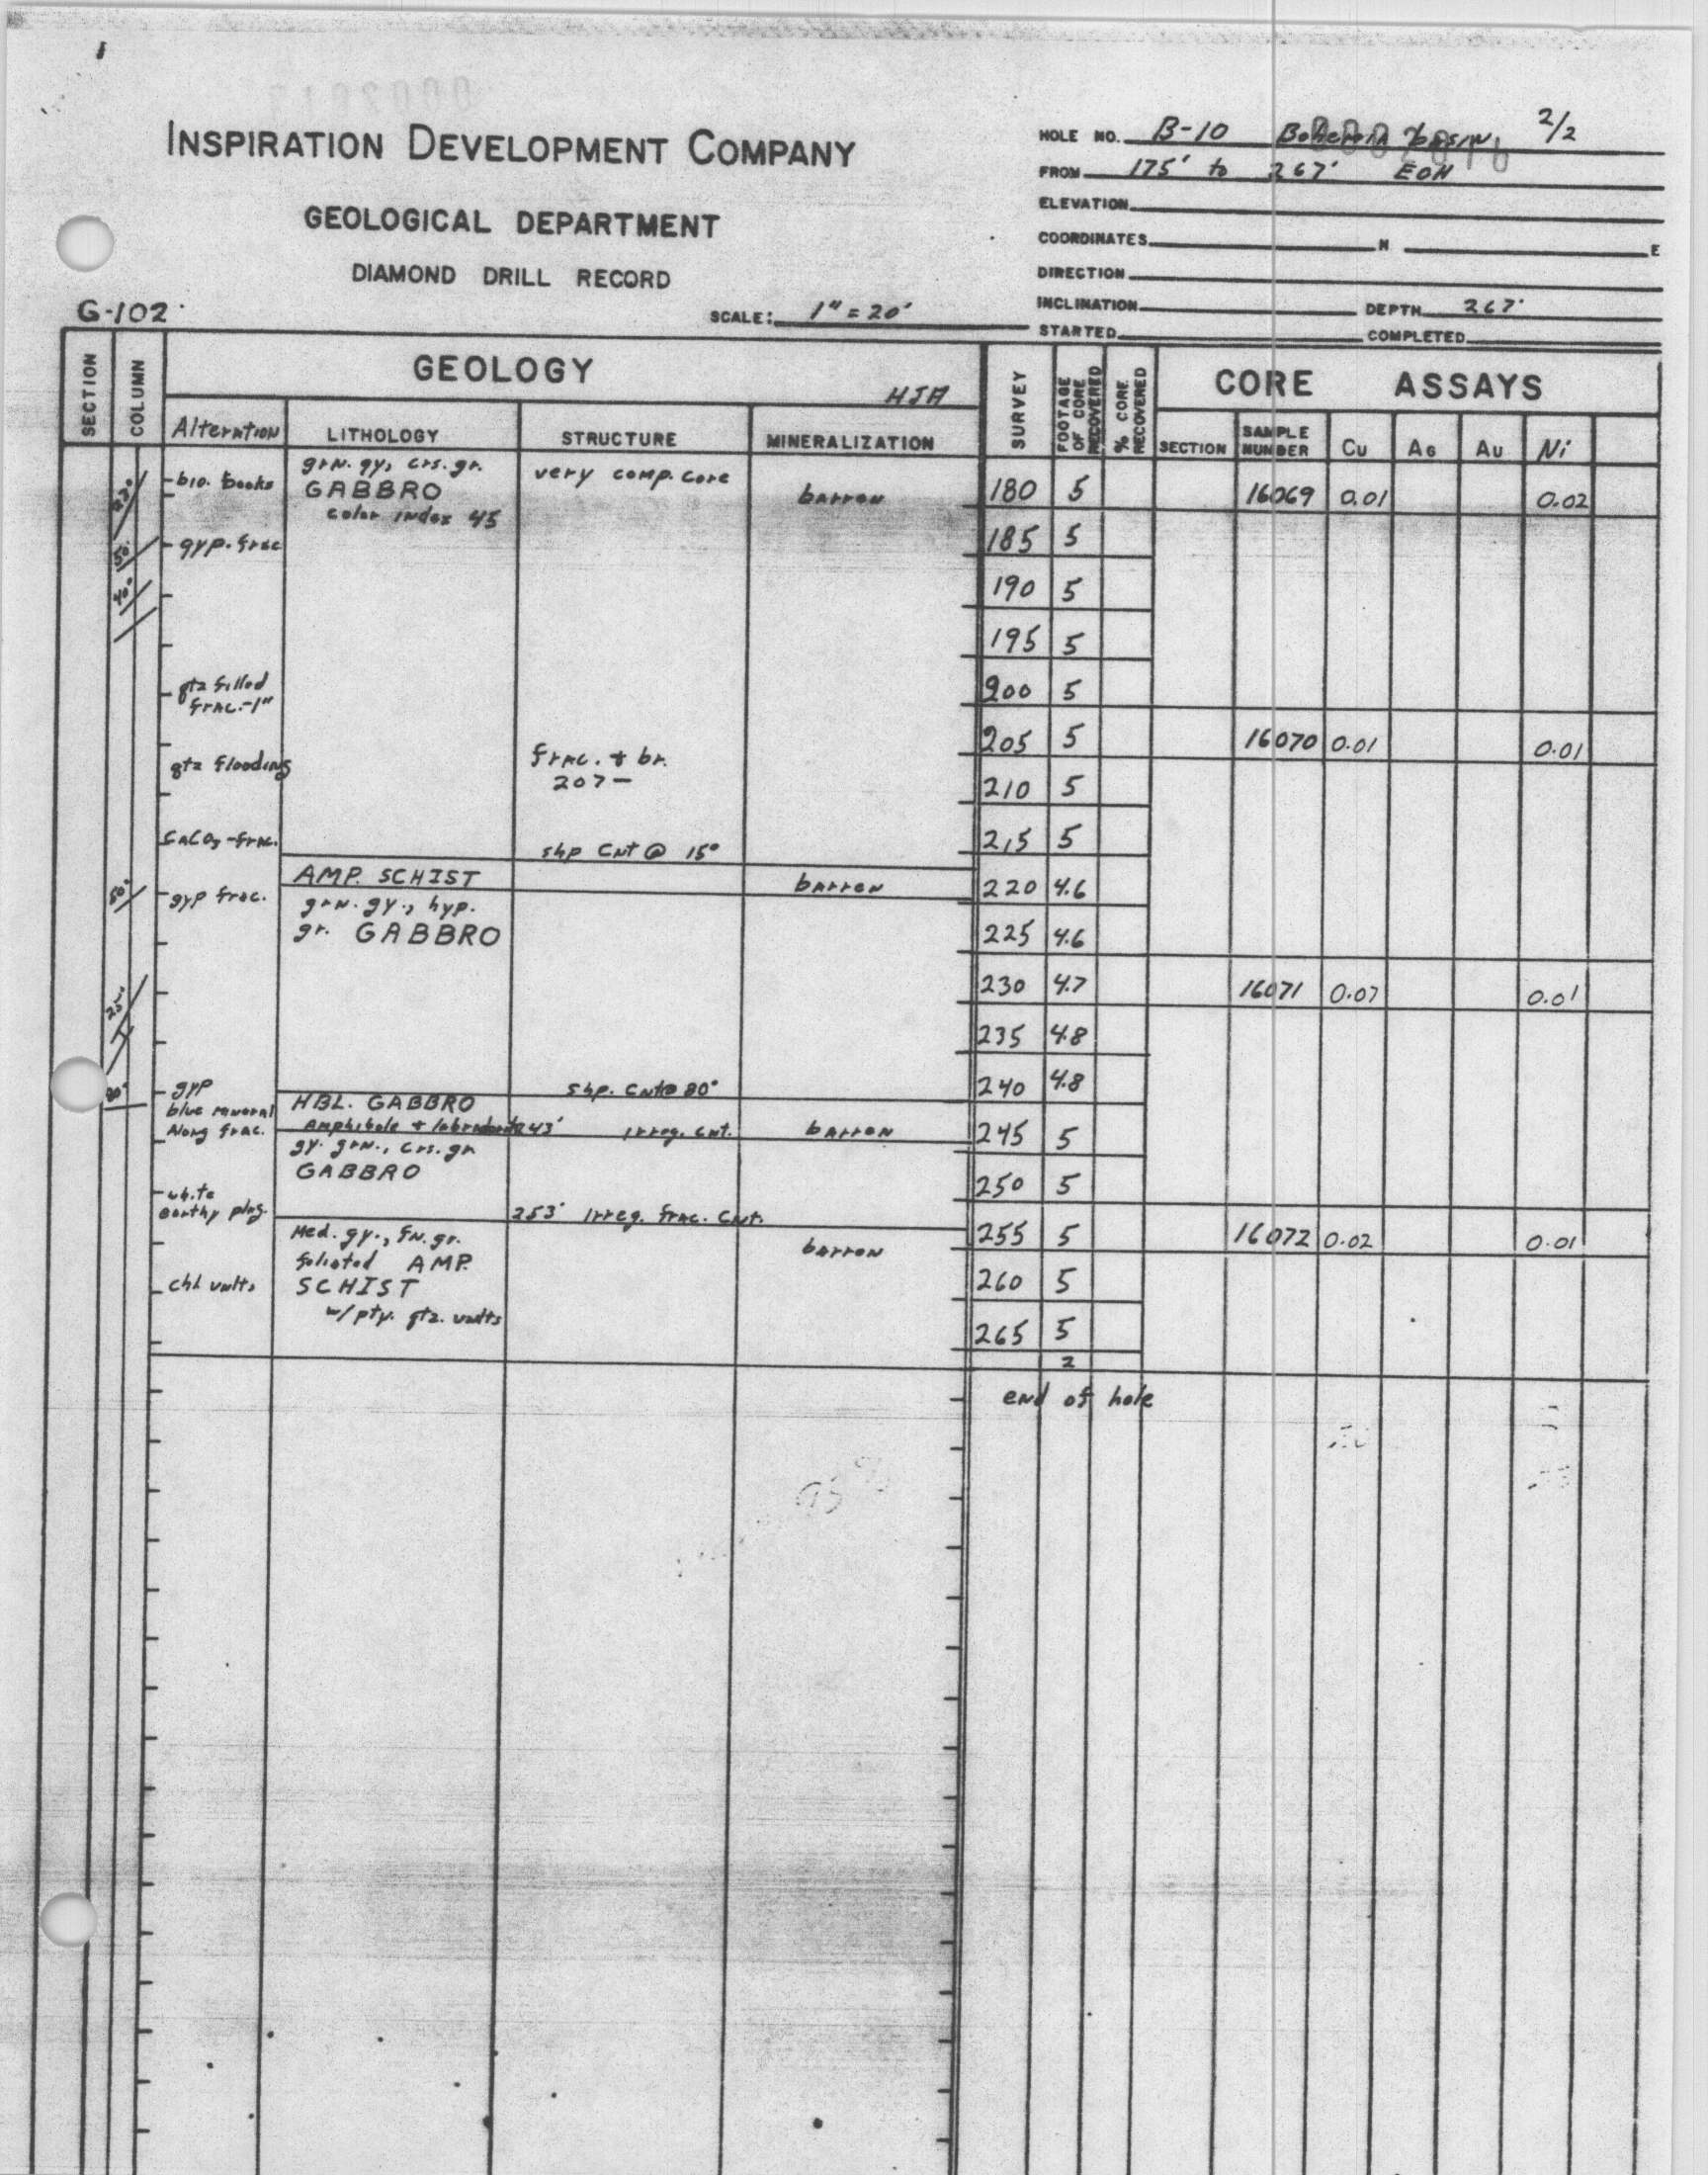 INSPIRATION DEVELOPMENT COMPANY
GEOLOGICAL DEPARTMENT
DIAMOND DRILL RECORD
G-102
SCALE: 1" = 20'
HOLE NO. B-10 basin 2/2
FROM 175' to 267' EOH
ELEVATION
COORDINATES N E
DIRECTION
INCLINATION DEPTH 267'
STARTED COMPLETED
SECTION
COLUMN
GEOLOGY
HJA
Alteration
LITHOLOGY
STRUCTURE
MINERALIZATION
SURVEY
FOOTAGE OF CORE RECOVERED
% CORE RECOVERED
CORE ASSAYS
SECTION
SAMPLE NUMBER
Cu
AG
AU
Ni
bio. books
grn. gy, crs. gr.
GABBRO
color index 45
very comp. core
barren
180 5 16069 0.01 0.02
50°
gyp. frac
185 5
40°
190 5
195 5
qtz filled
frac.-1"
200 5
205 5 16070 0.01 0.01
qtz flooding
frac. + br.
207-
210 5
CaCO3-frac.
215 5
shp Cnt @ 15°
AMP. SCHIST
barren
50°
gyp frac.
220 4.6
grn. gy., hyp.
gr. GABBRO
225 4.6
230 4.7 16071 0.07 0.01
25°
235 4.8
240 4.8
80°
gyp
blue mineral
Along frac.
shp. Cnt @ 80°
HBL. GABBRO
Amphibole + labradorite 243' irreg. Cnt.
barren
245 5
gy. grn., crs. gr
GABBRO
250 5
white
earthy plag.
253' irreg. frac. Cnt.
255 5 16072 0.02 0.01
Med. gy., fn. gr.
foliated AMP.
SCHIST
w/ pty. qtz. vnlts
barren
chl vnlts
260 5
265 5
2
end of hole